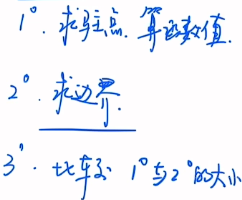 1°. 求驻点. 算函数值.
2°. 求边界.
3°. 比较 1°与2°的大小